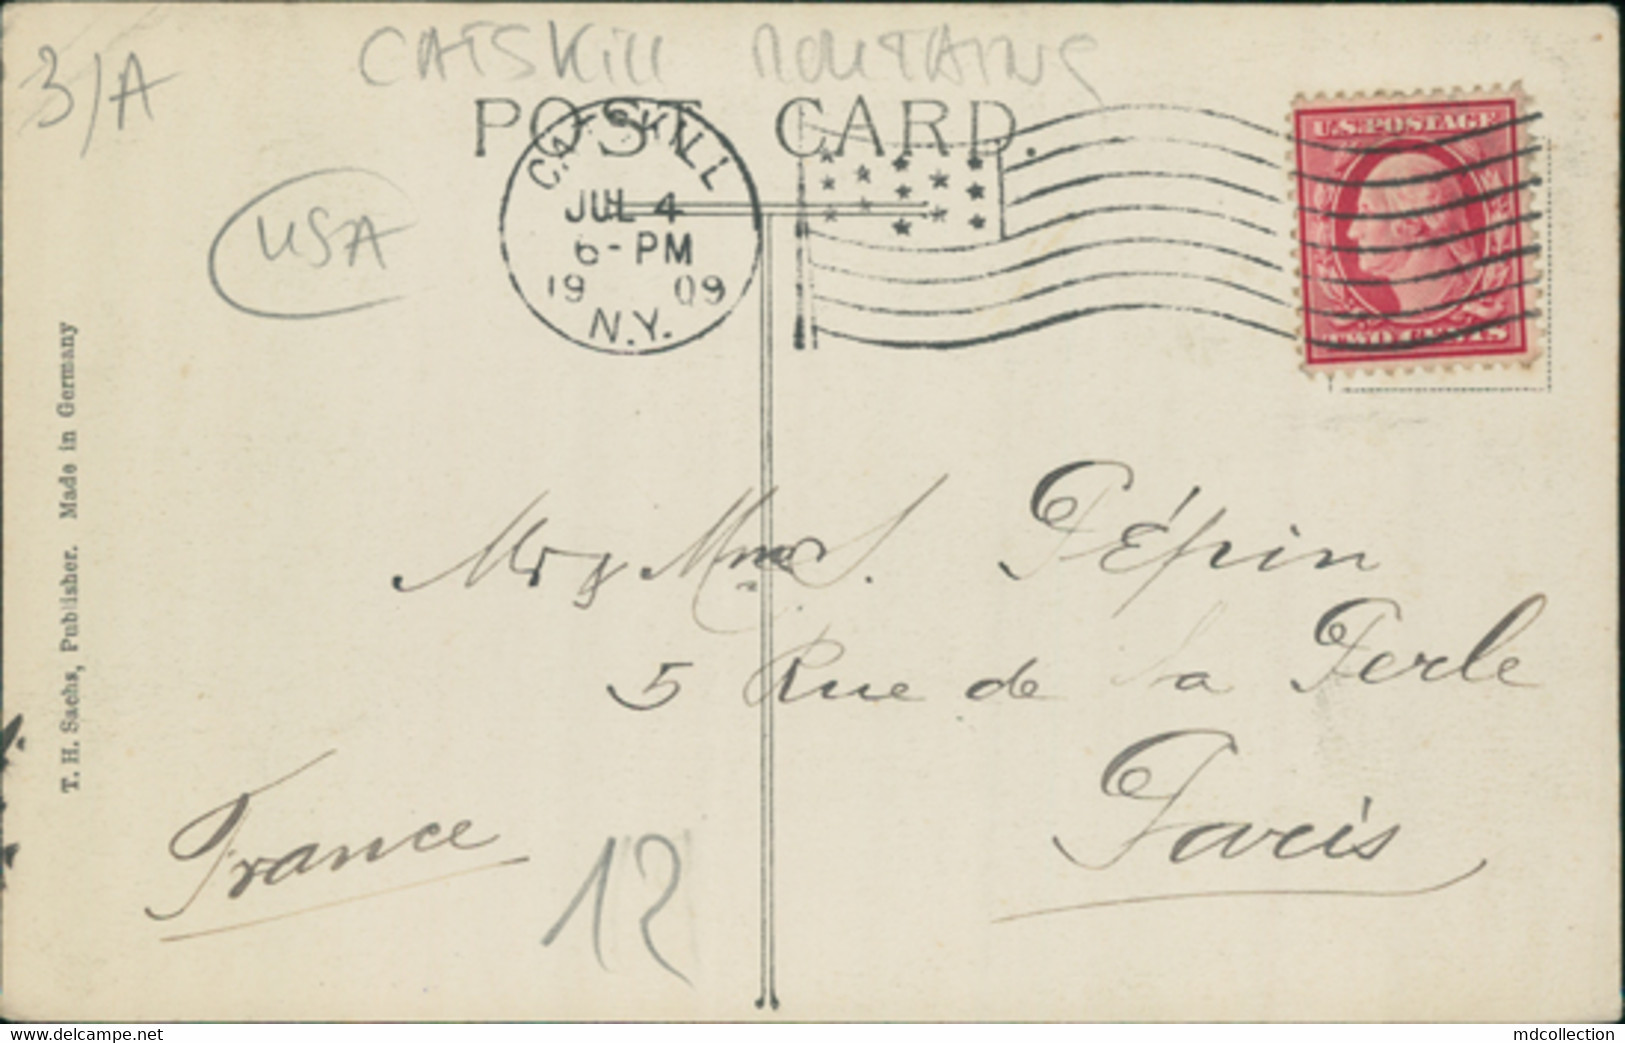 CATSKill MOUTAINS
3/A
POST CARD.
USA
CATSKILL
JUL 4
6-PM
1909
N.Y.
U.S. POSTAGE
TWO CENTS
T. H. Sachs, Publisher. Made in Germany
Mr & Mme S. Pépin
5 Rue de la Perle
Paris
France
12
www.delcampe.net
mdcollection